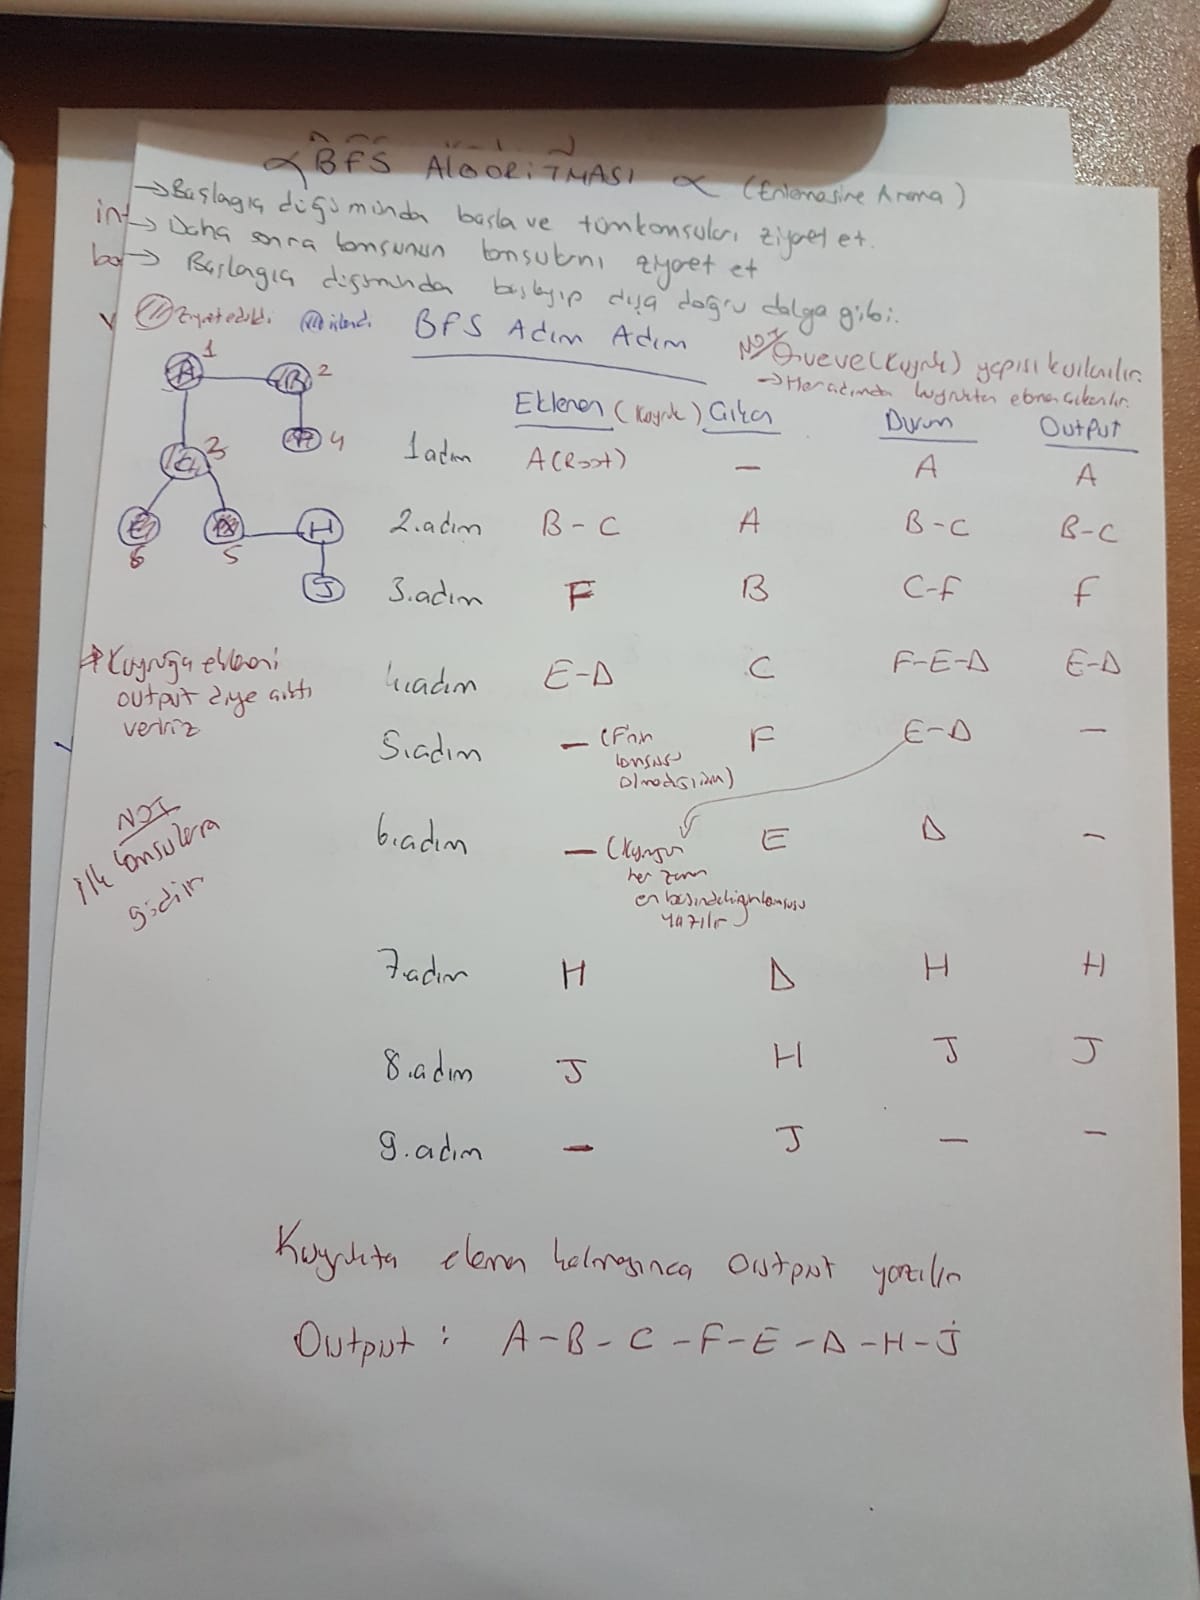 BFS AlGORiTMASI (Enlemasine Arama)
→ Başlagıç düğümünda başla ve tüm komsuları ziyaret et.
int → Daha sonra komsunun komsularını ziyaret et
→ Başlagıç düğümünda başlayıp dışa doğru dalga gibi.
Ziyaret edildi
BFS Adım Adım
NOT
Queue (Kuyruk) yapısı kullanılır.
→ Her adımda kuyruktan eleman çıkarılır.
A 1
B 2
4
C 3
E 6
D 5
H
J
Eklenen (Kuyruk) Çıkan Durum Output
1 adım A (Root) — A A
2. adım B - C A B - C B - C
3. adım F B C - F F
4. adım E - D C F - E - D E - D
5. adım — (F'nin komsusu olmadığı için) F E - D —
6. adım — (Kuyruğun her zaman en başındakinin komsusu yazılır E D —
7. adım H D H H
8. adım J H J J
9. adım — J — —
→ Kuyruğa ekleneni
output diye çıktı
veririz
NOT
ilk komsulara
gidilir
Kuyrukta eleman kalmayınca Output yazılır
Output : A - B - C - F - E - D - H - J